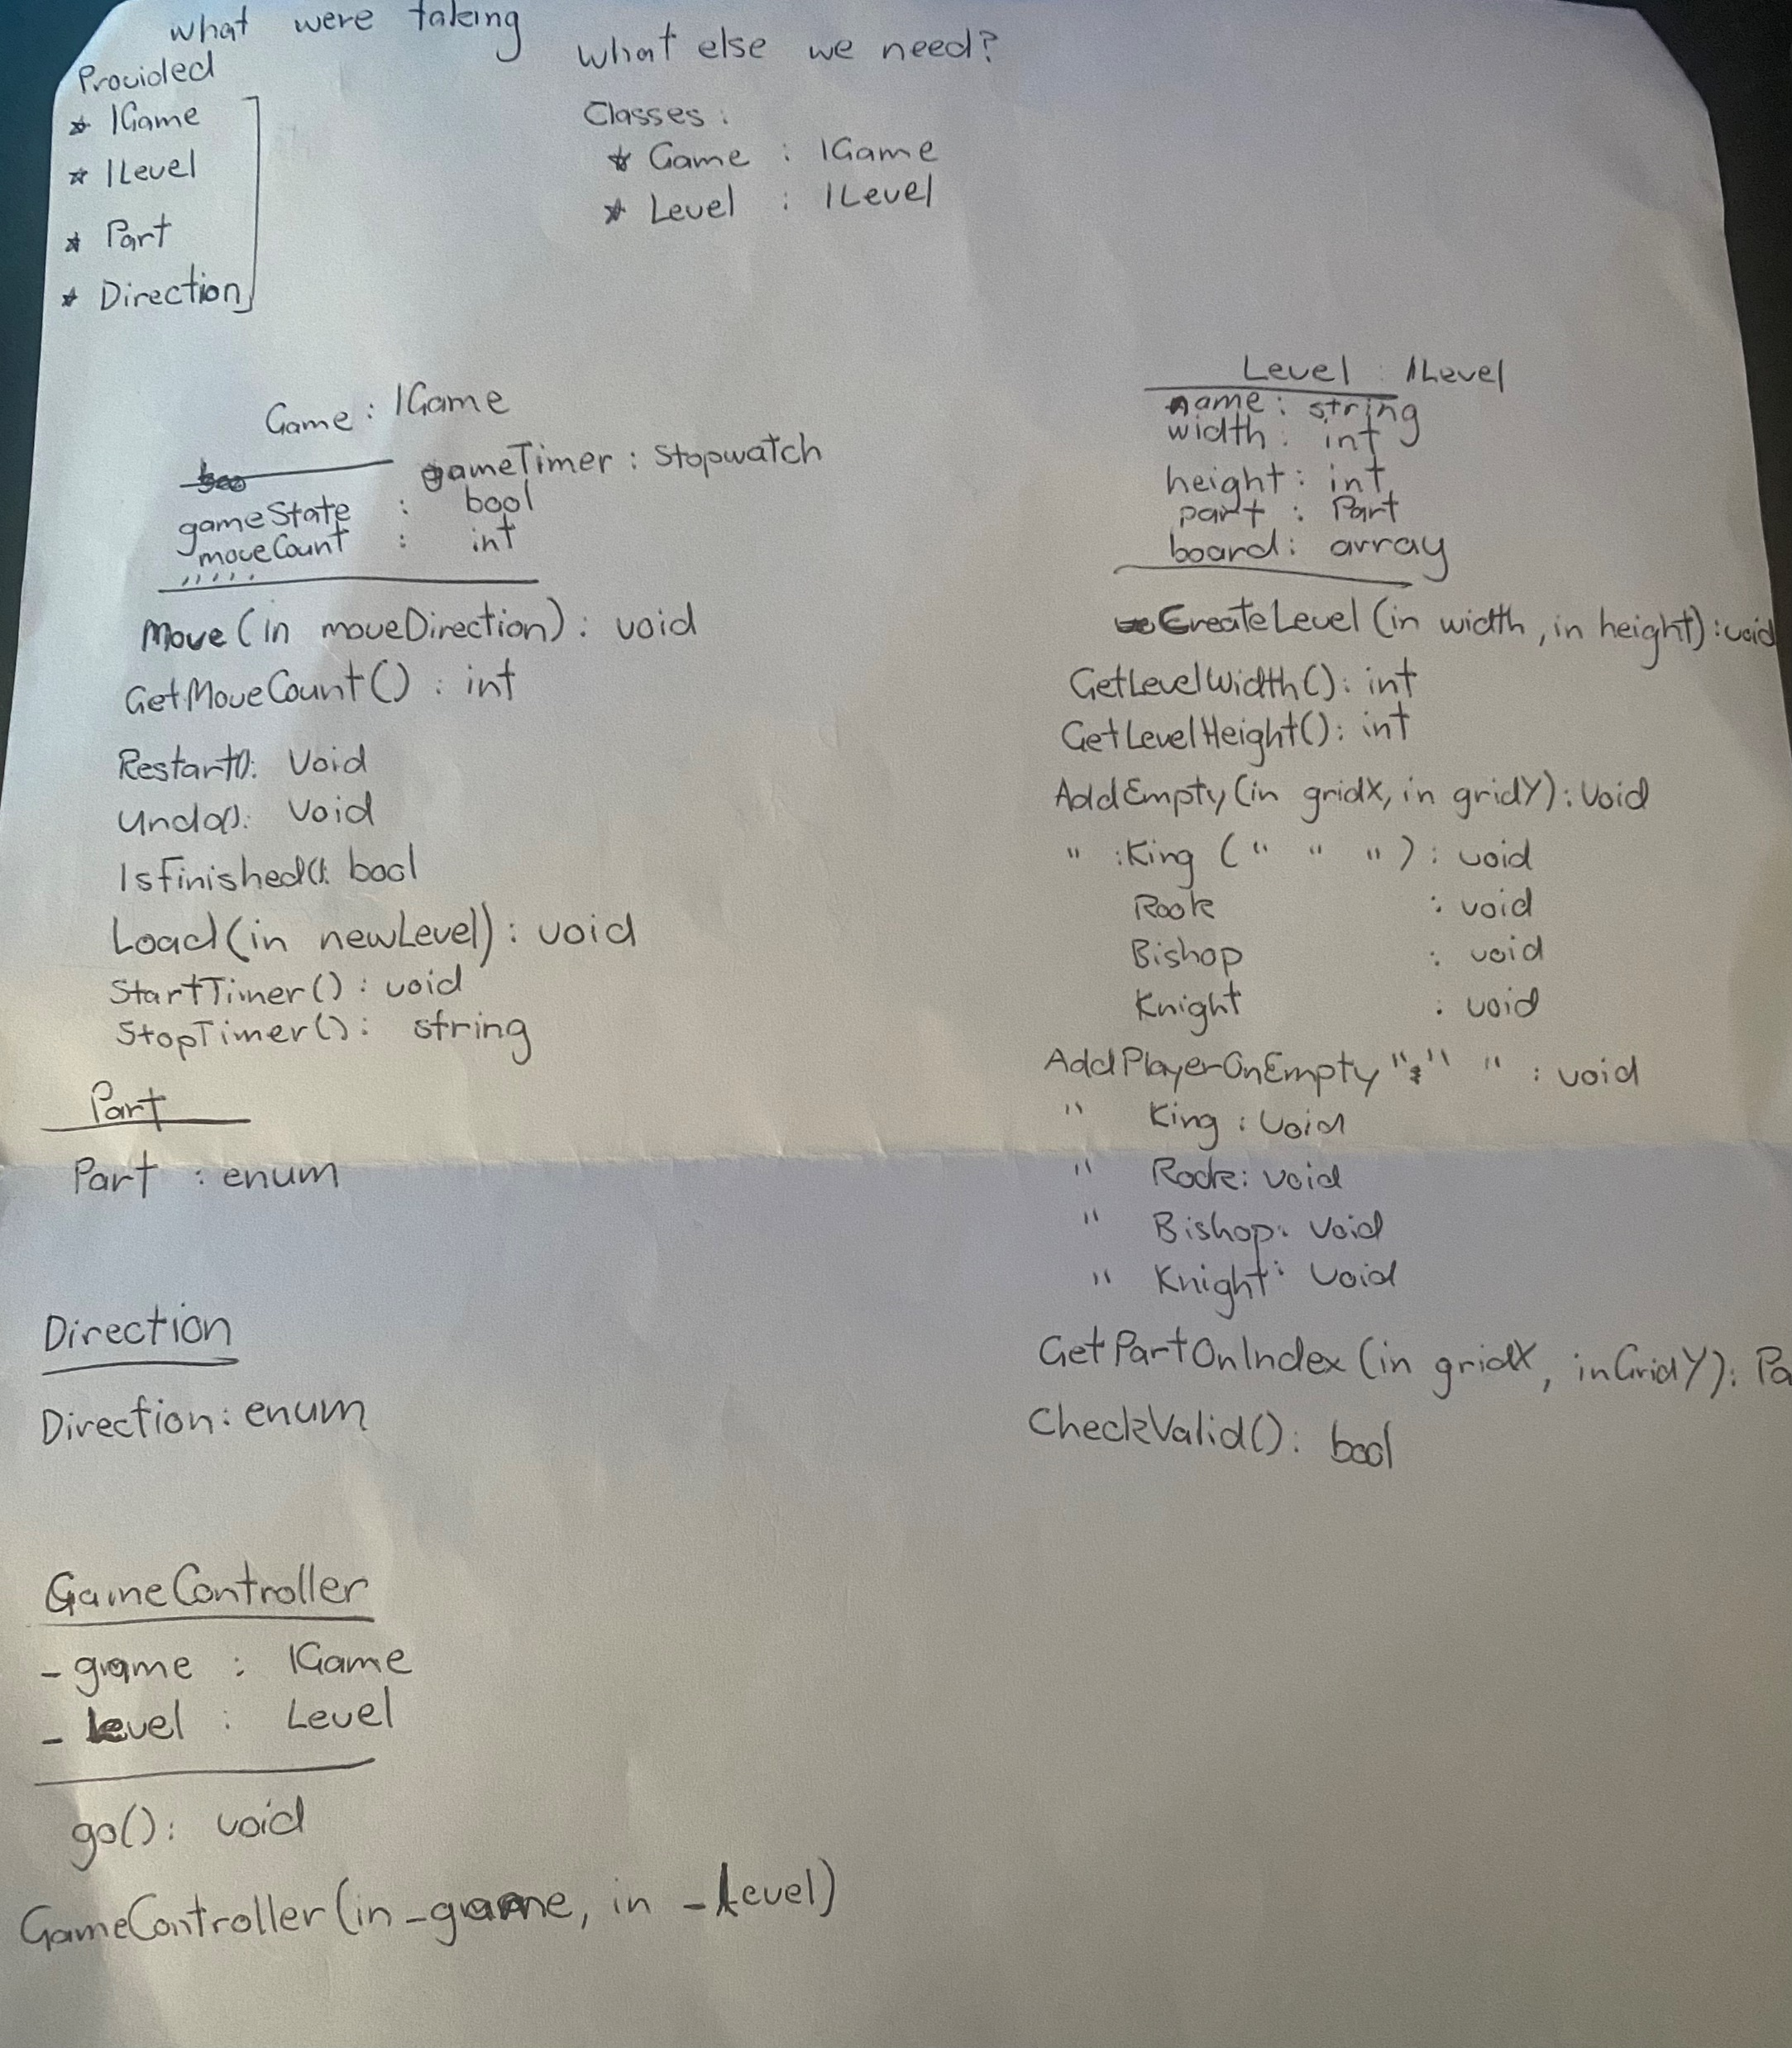 what were taking
Provided
* IGame
* ILevel
* Part
* Direction
what else we need?
Classes :
* Game : IGame
* Level : ILevel
Game : IGame
gameTimer : Stopwatch
gameState : bool
moveCount : int
Move(in moveDirection) : void
GetMoveCount() : int
Restart(): Void
Undo(): Void
IsFinished(): bool
Load(in newLevel) : void
StartTimer() : void
StopTimer() : string
Part
Part : enum
Direction
Direction : enum
GameController
- game : IGame
- level : Level
go() : void
GameController(in -game, in -Level)
Level : ILevel
name : string
width : int
height : int
part : Part
board : array
CreateLevel (in width, in height) : void
GetLevelWidth() : int
GetLevelHeight() : int
AddEmpty(in gridX, in gridY) : Void
" : King ( " " " ) : void
Rook : void
Bishop : void
Knight : void
AddPlayerOnEmpty " " " : void
" King : Void
" Rook : void
" Bishop : Void
" Knight : Void
GetPartOnIndex (in gridX, inGridY) : Pa
CheckValid() : bool